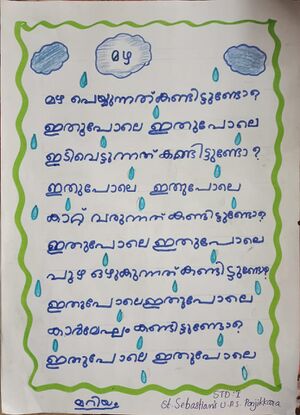 മഴ
മഴ പെയ്യുന്നത് കണ്ടിട്ടുണ്ടോ?
ഇതുപോലെ ഇതുപോലെ
ഇടിവെട്ടുന്നത് കണ്ടിട്ടുണ്ടോ?
ഇതുപോലെ ഇതുപോലെ
കാറ്റ് വരുന്നത് കണ്ടിട്ടുണ്ടോ?
ഇതുപോലെ ഇതുപോലെ
പുഴ ഒഴുകുന്നത് കണ്ടിട്ടുണ്ടോ?
ഇതുപോലെ ഇതുപോലെ
കാർമേഘം കണ്ടിട്ടുണ്ടോ?
ഇതുപോലെ ഇതുപോലെ
മറിയം
STD:I
St. Sebastian's U.P.S.